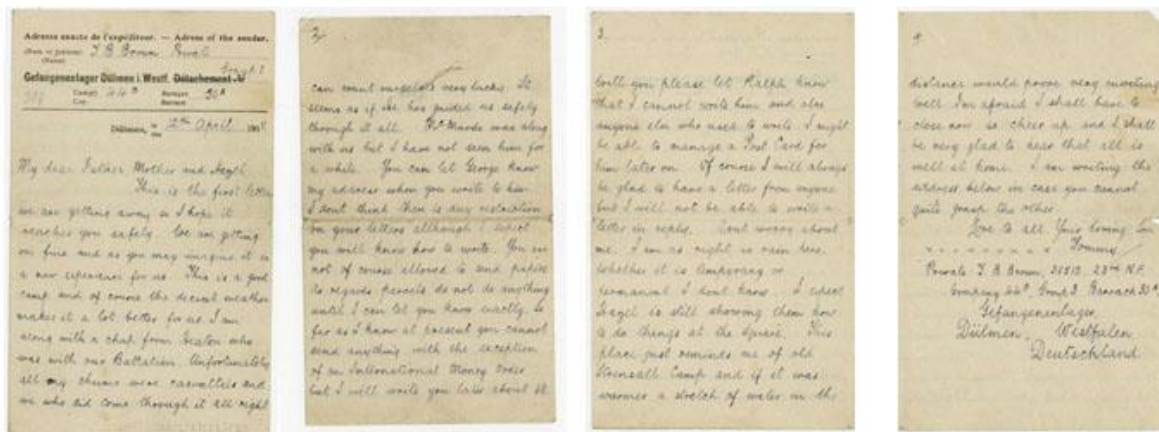 Adresse exacte de l'expéditeur. — Adress of the sender.
T B Brown Private
Group 2
Gefangenenlager Dülmen i. Westf. Détachement
44B 30A
Dülmen, 2nd April 191
My dear Father Mother and
This is the first letter
we are getting away so I hope it
reaches you safely. We are getting
on fine and as you may imagine it is
a new experience for us. This is a good
camp and of course the decent weather
makes it a lot better for us. I am
along with a chap from Seaton who
was with our Battalion. Unfortunately
all my chums were casualties and
we who did come through it all right
2.
can count ourselves very lucky. It
seems as if He has guided us safely
through it all. was along
with us but I have not seen him for
a while. You can let George know
my address when you write to him
I dont think there is any restriction
on your letters although I expect
you will know how to write. You are
not of course allowed to send papers
As regards parcels do not do anything
until I can let you know exactly. As
far as I know at present you cannot
send anything with the exception
of an International Money Order
but I will write you later about it.
3.
Will you please let Ralph know
that I cannot write him and also
anyone else who used to write. I might
be able to manage a Post Card for
him later on. Of course I will always
be glad to have a letter from anyone
but I will not be able to write a
letter in reply. Dont worry about
me. I am as right as rain here.
Whether it is temporary or
permanent I dont know. I expect
is still showing them how
to do things at the This
place just reminds me of old
Camp and if it was
warmer a stretch of water in the
4
distance would prove very inviting
Well I'm afraid I shall have to
close now so cheer up and I shall
be very glad to hear that all is
well at home. I am writing the
address below in case you cannot
quite grasp the other.
Love to all Your loving Son
Tommy
Private T B Brown, 23rd N.F.
Company 44B, Group 2 Barrack 30A,
Gefangenenlager,
Dülmen, Westfalen
Deutschland